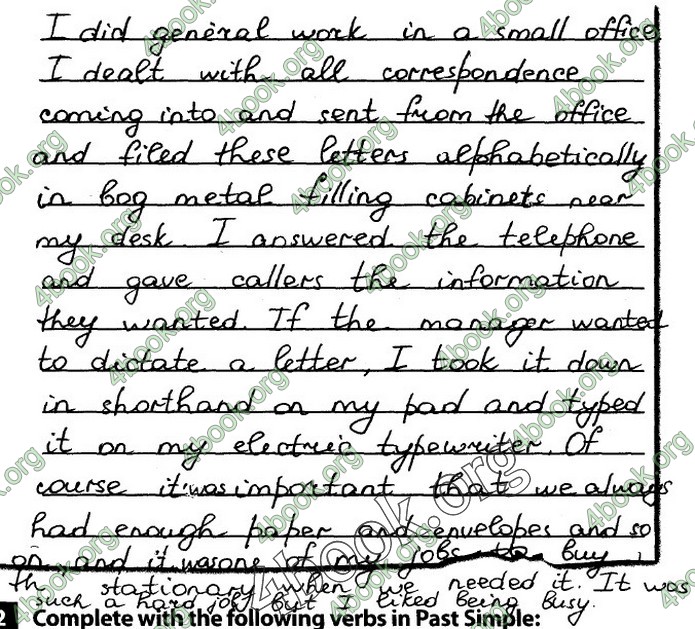 I did general work in a small office
I dealt with all correspondence
coming into and sent from the office
and filed these letters alphabetically
in bog metal filling cabinets near
my desk. I answered the telephone
and gave callers the information
they wanted. If the manager wanted
to dictate a letter, I took it down
in shorthand on my pad and typed
it on my electric typewriter. Of
course it was important that we always
had enough paper and envelopes and so
on and it was one of my jobs to buy
th stationary when we needed it. It was
such a hard job but I liked being busy.
2 Complete with the following verbs in Past Simple:
4book.org